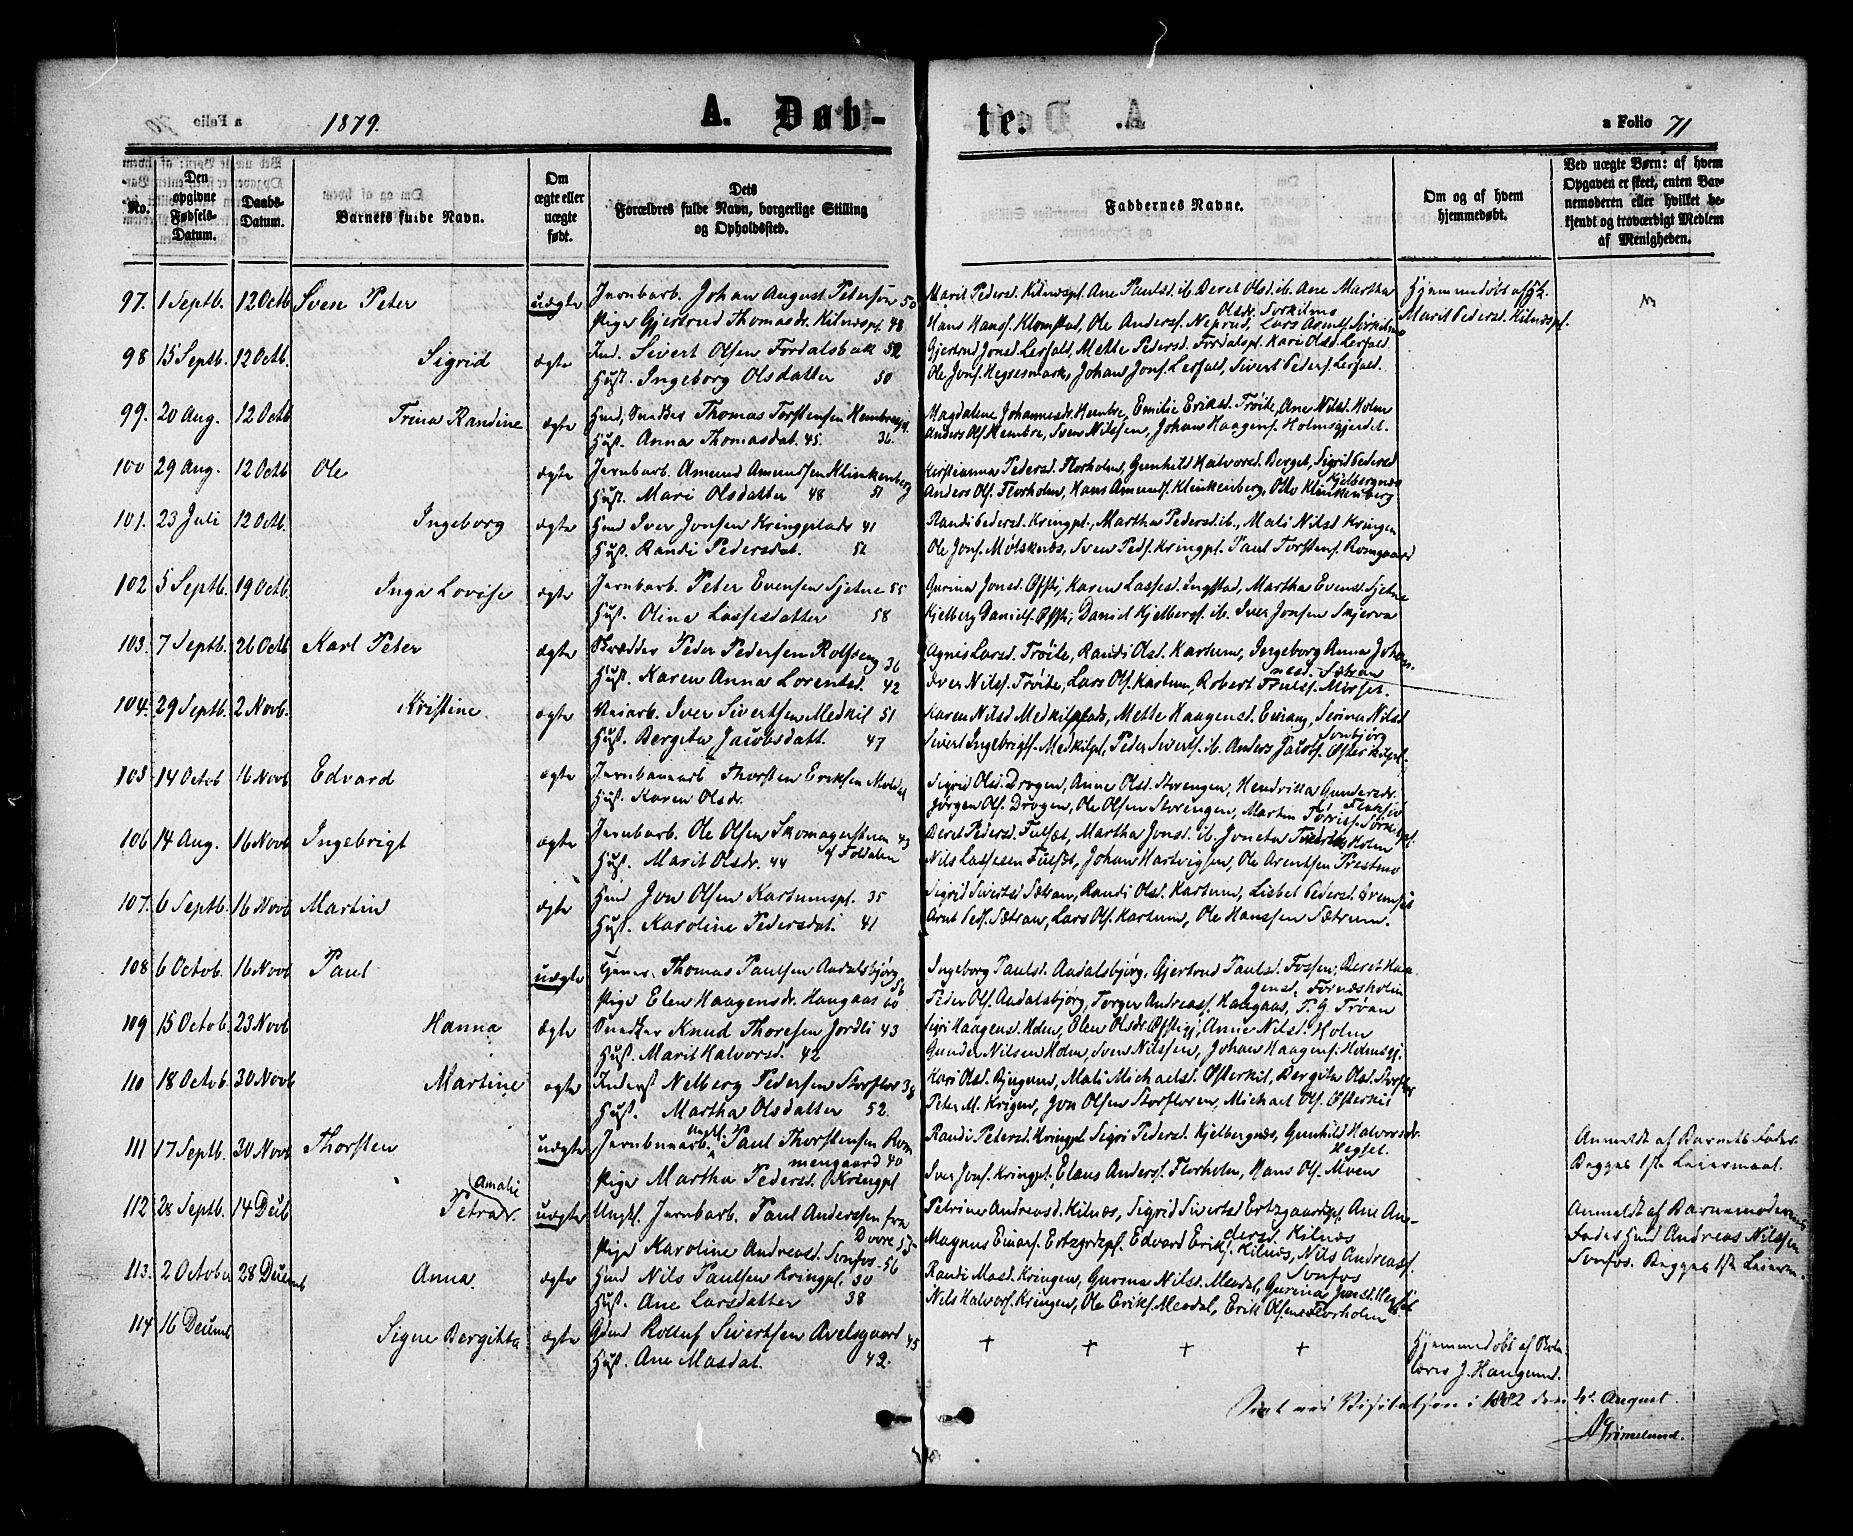 1879.
A. Døb-
te.
a Folio 71
No.
Den opgivne Fødsels-Datum.
Daabs-Datum.
Barnets fulde Navn.
Om ægte eller uægte født.
Dets Forældres fulde Navn, borgerlige Stilling og Opholdssted.
Faddernes Navne.
Om og af hvem hjemmedøbt.
Ved uægte Børn: af hvem Opgaven er skeet, enten Barnemoderen eller hvilket bekjendt og troværdigt Medlem af Menigheden.
97. 1 Septb. 12 Octb Sven Peter uægte Jernbarb. Johan August Peterson 50
Pige Gjertrud Thomasdr. Kilnæspl. 48
Marit Pedersd. Kilnæspl. Ane Paulsd. ib. Beret Olsd. ib. Ane Martha Olsdr. Sørkilmo
Hans Hans. Klomstad, Ole Anders. Neprud, Lars Arnts. Sørkilmo
Hjemmedøbt af
Marit Pedersd. Kilnæspl.
98 15 Septb. 12 Octb. Sigrid ægte Ind. Sivert Olsen Fordalsbak 52
Hust. Ingeborg Olsdatter 50
Gjertrud Jonsd. Lerfald, Mette Pedersd. Fordalspl. Kari Olsd. Lerfald
Ole Jons. Hegsesmark, Johans Jons. Lerfald, Sivert Peders. Lerfald.
99. 20 Aug. 12 Octb Trina Randine ægte Hmd, Snedker Thomas Torstensen Hembrespl. 36
Hust. Anna Thomasdat. 45.
Magdalene Johannesdr. Hembre, Emilie Eriksd. Trøite, Ane Nilsd. Holm
Anders Ols. Hembre, Sven Nilssen, Johan Haagens. Holmsgjerdet.
100 29 Aug. 12 Octb Ole ægte Jernbarb. Amund Amundsen Klinkenberg 51
Hust. Mari Olsdatter 48
Kirstianna Pedersd. Florholm, Gunhild Halvorsd. Berget, Sigrid Pedersd Kjelbergnæs
Anders Ols. Florholm, Hans Amunds. Klinkenberg, Otto Klinkenberg
101. 23 Juli 12 Octb. Ingeborg ægte Hmd Iver Jonsen Kringplads 41
Hust. Randi Pedersdat. 52
Randi Pedersd. Kringpl., Martha Pedersd. ib., Mali Nilsd Kringen
Ole Jons. Mølsknæs, Sven Peds. Kringpl. Paul Torstens. Romgaard
102 5 Septb. 19 Octb. Inga Lovise ægte Jernbarb. Peter Evensen Sjetne 55
Hust. Olina Lassesdatter 58
Gurina Jonsd. Øfsti, Karen Lassesd. Ingstad, Martha Evensd. Sjetne
Kjelberg Daniels. Øfsti, Daniel Kjelbergs. ib. Iver Jonsen Skjerva
103. 7 Septb. 26 Octb Karl Peter ægte Skrædder Peder Pedersen Rolfseng 36
Hust. Karen Anna Lorentsd. 42
Agnes Larsd. Trøite, Randi Olsd. Kartum, Ingeborg Anna Johannesd. Sætran
Iver Nils. Trøite, Lars Ols. Kartum, Robert Truls. Mørset.
104. 29 Septb. 2 Novb. Kristine ægte Veiarb. Iver Sivertsen Medkil 51
Hust. Bergita Jacobsdatt. 47
Karen Nilsd Medkilplads, Mette Haagensd. Einang, Serina Nilsd Sonbjørg
Sivert Ingebrigts. Medkilpl, Peder Siverts. ib. Anders Jacobs. Østerkilpl.
105 14 Octob 16 Novb Edvard ægte Jernbanearb Thorsten Eriksen Moldal
Hust. Karen Olsdr.
Sigrid Olsd. Drogen, Anne Olsd. Storengen, Hendrikka Gundersdr.
Jørgen Ols. Drogen, Ole Olsen Storengen, Martin
106 14 Aug. 16 Novb Ingebrigt ægte Jernbarb. Ole Olsen Skomagerstuen af Foldalen 43
Hust. Marit Olsdr. 44
Beret Pedersd. Fulsæt, Martha Jonsd. ib. Joneta Holm
Nils Lassesen Fulsæt, Johan Hartvigsen, Ole Arentsen Prestmo
107. 6 Septb. 16 Novb Martin ægte Hmd Jon Olsen Kartumspl. 35
Hust. Karoline Pedersdat. 41
Sigrid Sivertsd Sætran, Randi Olsd. Kartum, Lisbet Pedersd.
Arnt Peds. Sætran, Lars Ols. Kartum, Ole Hanssen Sætrum.
108 6 Octob. 16 Novb Paul uægte Tjener. Thomas Paulsen Aadalsbjørg 56
Pige Elen Haagensdr. Haugaas 60
Ingeborg Paulsd. Aadalsbjørg, Gjertrud Paulsd. Fossen, Beret Haagensd. Fornæsholm
Peder Ols. Aadalsbjørg, Torger Andreass. Haugaas, P. G. Trøan
109 15 Octob. 23 Novb Hanna ægte Snedker Knud Thoresen Jordli 43
Hust. Marit Halvorsd. 42
Sigri Haagensd. Holm, Elen Olsdr. Øfstigj, Anne Nilsd. Holm
Gunder Nilsen Holm, Sven Nilssen, Johan Haagens. Holmsgj.
110 18 Octob. 30 Novb Martine ægte Inderst Nelberg Pedersen Storflor 38
Hust. Martha Olsdatter 52.
Kari Olsd. Bjugum, Mali Michaelsd. Østerkil, Bergita Olsd. Storflor
Peter M. Krigen, Jon Olsen Storfloren, Michael Ols. Østerkil
111 17 Septb. 30 Novb. Thorsten uægte Jernbanearb. Ungkl. Paul Thorstensen Rommengaard 40
Pige Martha Pedersd. Kringpl
Randi Petersd. Kringpl. Sigri Pedersd. Kjelbergnæs, Gunhild Halvorsdr. Hegset.
Iver Jons. Kringpl., Elaus Anders. Florholm, Hans Ols. Moen
Anmeldt af Barnets Fader.
Begges 1ste Leiermaal.
112 28 Septb. 14 Decb Petra Amalie uægte Ungkl. Jernbarb. Paul Anderssen fra Dovre 55
Pige Karoline Andreasd. Sonfos 56
Petrine Andreasd. Kilnæs, Sigrid Sivertsd Ertzgaardspl, Ane Andersd. Kilnæs
Magnus Einars. Ertzgrdspl. Edvard Eriks. Kilnæs, Nils Andreass. Sonfos
Anmeldt af Barnemoderens
Fader Hmd Andreas Nilssen
Sonfos. Begges 1ste Leierm.
113. 2 October 28 Decemb Anna ægte Hmd Nils Paulsen Kringpl. 30
Hust. Ane Larsdatter 38
Randi Masd. Kringen, Gurina Nilsd. Meadal, Gurina Jonsd. Hegset
Nils Halvors. Kringen, Ole Eriks. Meadal, Erik Olsen Florholm
114 16 Decemb Signe Bergitta ægte Gmd Rolluf Sivertsen Avelsgaard 45
Hust. Ane Masdat. 42.
+ + + +
Hjemmedøbt af
J. Haugum.
Seet ved Visitatsen i 1882 den 4de August.
Grømelund.